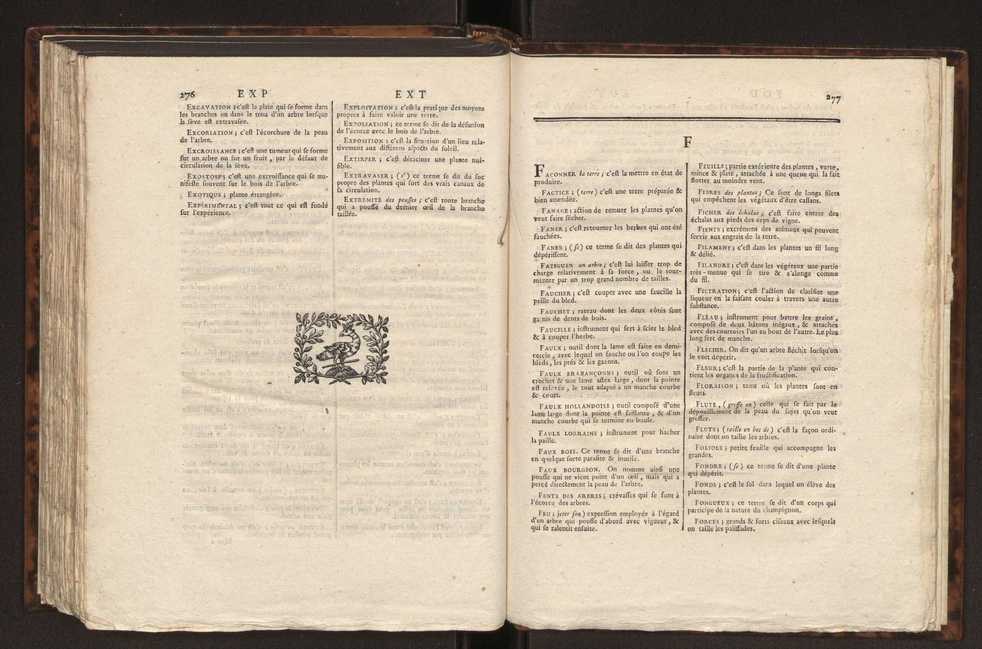 276 EXP EXT
EXCAVATION ; c'est la plaie qui se forme dans
les branches ou dans le trou d'un arbre lorsque
la seve est extravasée.
EXCORIATION ; c'est l'écorchure de la peau
de l'arbre.
EXCROISSANCE ; c'est une tumeur qui se forme
sur un arbre ou sur un fruit , par le défaut de
circulation de la seve.
EXOSTOSE ; c'est une excroissance qui se ma-
nifeste souvent sur le bois de l'arbre.
EXOTIQUE ; plante étrangère.
EXPÉRIMENTAL ; c'est tout ce qui est fondé
sur l'expérience.
EXPLOITATION ; c'est la pratique des moyens
propres à faire valoir une terre.
EXPOLIATION ; ce terme se dit de la désunion
de l'écorce avec le bois de l'arbre.
EXPOSITION ; c'est la situation d'un lieu rela-
tivement aux différens aspects du soleil.
EXTIRPER ; c'est déraciner une plante nui-
sible.
EXTRAVASER ; (s') ce terme se dit du suc
propre des plantes qui sort des vrais canaux de
sa circulation.
EXTRÉMITÉ des pousses ; c'est toute branche
qui a poussé du dernier œil de la branche
taillée.
277
F
FAÇONNER la terre ; c'est la mettre en état de
produire.
FACTICE ; (terre) c'est une terre préparée &
bien amendée.
FANAGE ; action de remuer les plantes qu'on
veut faire sécher.
FANER ; c'est retourner les herbes qui ont été
fauchées.
FANER ; (se) ce terme se dit des plantes qui
dépérissent.
FATIGUER un arbre ; c'est lui laisser trop de
charge relativement à sa force , ou le tour-
menter par un trop grand nombre de tailles.
FAUCHER ; c'est couper avec une faucille la
paille du bled.
FAUCHET ; rateau dont les deux côtés sont
garnis de dents de bois.
FAUCILLE ; instrument qui sert à scier le bled
& à couper l'herbe.
FAULX ; outil dont la lame est faite en demi-
cercle , avec lequel on fauche ou l'on coupe les
bleds , les prés & les gazons.
FAULX BRABANÇONNE ; outil où sont un
crochet & une lame assez large , dont la pointe
est relevée , le tout adapté à un manche courbe
& court.
FAULX HOLLANDOISE ; outil composé d'une
lame large dont la pointe est saillante , & d'un
manche courbe qui se termine en boule.
FAULX LORRAINE ; instrument pour hacher
la paille.
FAUX BOIS. Ce terme se dit d'une branche
en quelque sorte parasite & inutile.
FAUX BOURGEON. On nomme ainsi une
pousse qui ne vient point d'un œil , mais qui a
percé directement la peau de l'arbre.
FENTE DES ARBRES ; crévasses qui se font à
l'écorce des arbres.
FEU ; jeter son) expression employée à l'égard
d'un arbre qui pousse d'abord avec vigueur , &
qui se ralentit ensuite.
FEUILLE ; partie extérieure des plantes , verte,
mince & plate , attachée à une queue qui la fait
flotter au moindre vent.
FIBRES des plantes ; Ce sont de longs filets
qui empêchent les végétaux d'être cassans.
FICHER des échalas , c'est faire entrer des
échalas aux pieds des ceps de vigne.
FIENTE ; excrément des animaux qui peuvent
servir aux engrais de la terre.
FILAMENT ; c'est dans les plantes un fil long
& délié.
FILANDRE ; c'est dans les végétaux une partie
très-menue qui se tire & s'alonge comme
du fil.
FILTRATION ; c'est l'action de clarifier une
liqueur en la faisant couler à travers une autre
substance.
FLÉAU ; instrument pour battre les grains ,
composé de deux bâtons inégaux , & attachés
avec des courroies l'un au bout de l'autre. Le plus
long sert de manche.
FLÉCHIR. On dit qu'un arbre fléchit lorsqu'on
le voit dépérir.
FLEUR ; c'est la partie de la plante qui con-
tient les organes de la fructification.
FLORAISON ; tems où les plantes sont en
fleurs.
FLUTE , (greffe en) celle qui se fait par le
dépouillement de la peau du sujet qu'on veut
greffer.
FLUTE ; (taille en bec de) c'est la façon ordi-
naire dont on taille les arbres.
FOLIOLE ; petite feuille qui accompagne les
grandes.
FONDRE ; (se) ce terme se dit d'une plante
qui dépérit.
FONDS ; c'est le sol dans lequel on élève des
plantes.
FONGUEUX ; ce terme se dit d'un corps qui
participe de la nature du champignon.
FORCES ; grands & forts ciseaux avec lesquels
on taille les palissades.